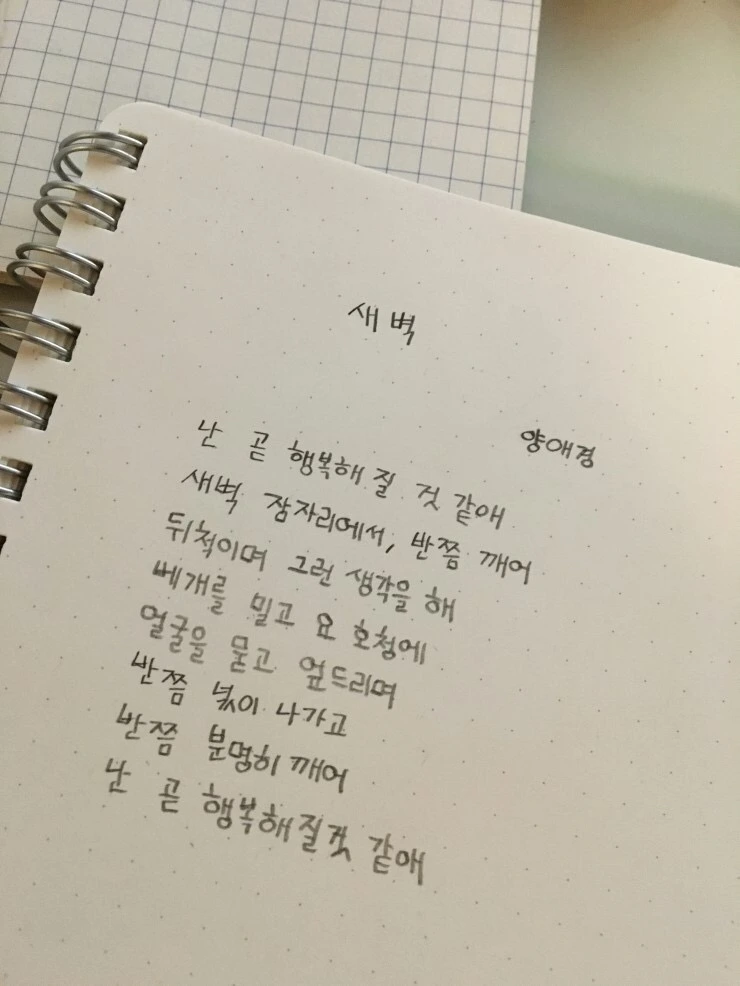 새벽
양애경
난 곧 행복해 질 것 같애
새벽 잠자리에서, 반쯤 깨어
뒤척이며 그런 생각을 해
베개를 밀고 요 호청에
얼굴을 묻고 엎드리며
반쯤 넋이 나가고
반쯤 분명히 깨어
난 곧 행복해질것 같애